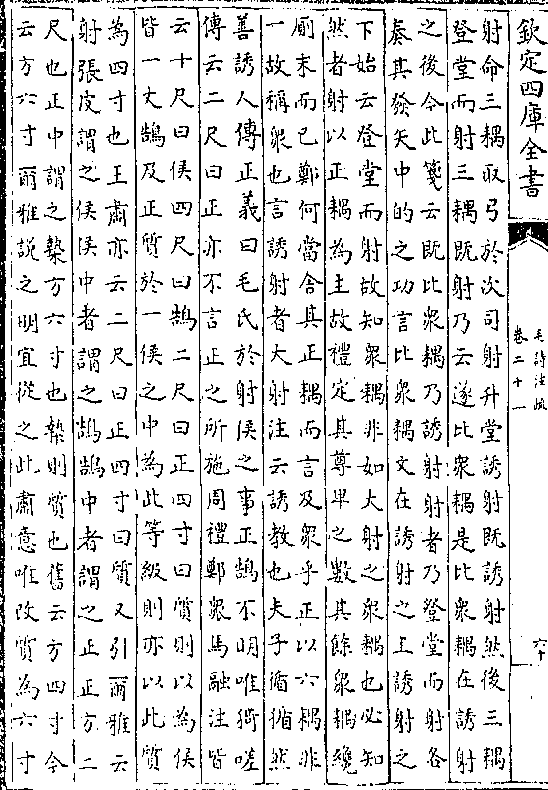 欽定四庫全書
毛詩注疏
卷二十一
六十
射命三耦取弓於次司射升堂誘射既誘射然後三耦
登堂而射三耦既射乃云遂比衆耦是比衆耦在誘射
之後今此箋云既比衆耦乃誘射射者乃登堂而射各
奏其發矢中的之功言比衆耦文在誘射之上誘射之
下始云登堂而射故知衆耦非如大射之衆耦也必知
然者射以正耦為主故禮定其尊卑之數其餘衆耦纔
廁末而已鄭何當舍其正耦而言及衆乎正以六耦非
一故稱衆也言誘射者大射注云誘教也夫子循循然
善誘人傳正義曰毛氏於射侯之事正鵠不明唯猗嗟
傳云二尺曰正亦不言正之所施周禮鄭衆馬融注皆
云十尺曰侯四尺曰鵠二尺曰正四寸曰質則以為侯
皆一丈鵠及正質於一侯之中為此等級則亦以此質
為四寸也王肅亦云二尺曰正四寸曰質又引爾雅云
射張皮謂之侯侯中者謂之鵠鵠中者謂之正正方二
尺也正中謂之槷方六寸也槷則質也舊云方四寸今
云方六寸爾雅説之明宜從之此肅意唯改質為六寸